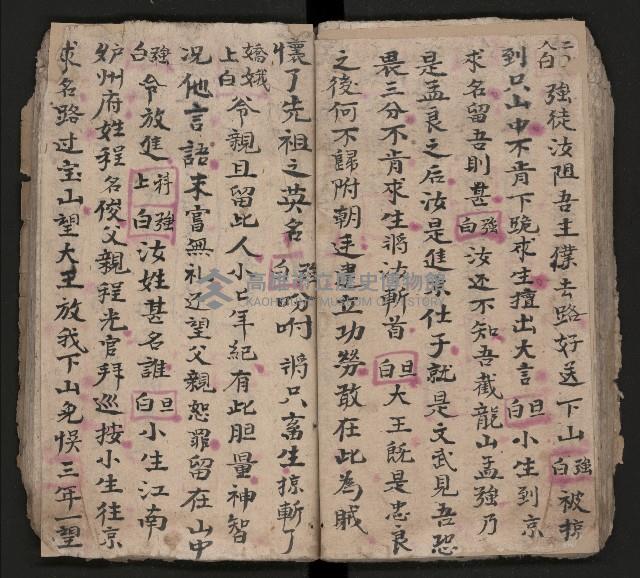 二人白 強徒汝阻吾主僕去路好送下山 強白 被擄
到只山中不肯下跪求生擅出大言 旦白 小生到京
求名留吾則甚 強白 汝还不知吾截龍山孟強乃
是孟良之后汝是進京仕子就是文武見吾恐
畏三分不肯求生將汝斬首 旦白 大王既是忠良
之後何不歸附朝廷建立功勞敢在此為賊
懷了先祖之英名 強白 分咐將只畜生掠斬了
嬌娥上白 令親且留此人小年紀有此胆量神智
况他言語未嘗無礼还望父親恕罪留在山中
強白 令放進 科上 強白 汝姓甚名誰 旦白 小生江南
妒州府姓程名俊父親程光官拜巡按小生往京
求名路过宝山望大王放我下山免悞三年一望
高雄市立歷史博物館
KAOHSIUNG MUSEUM OF HISTORY